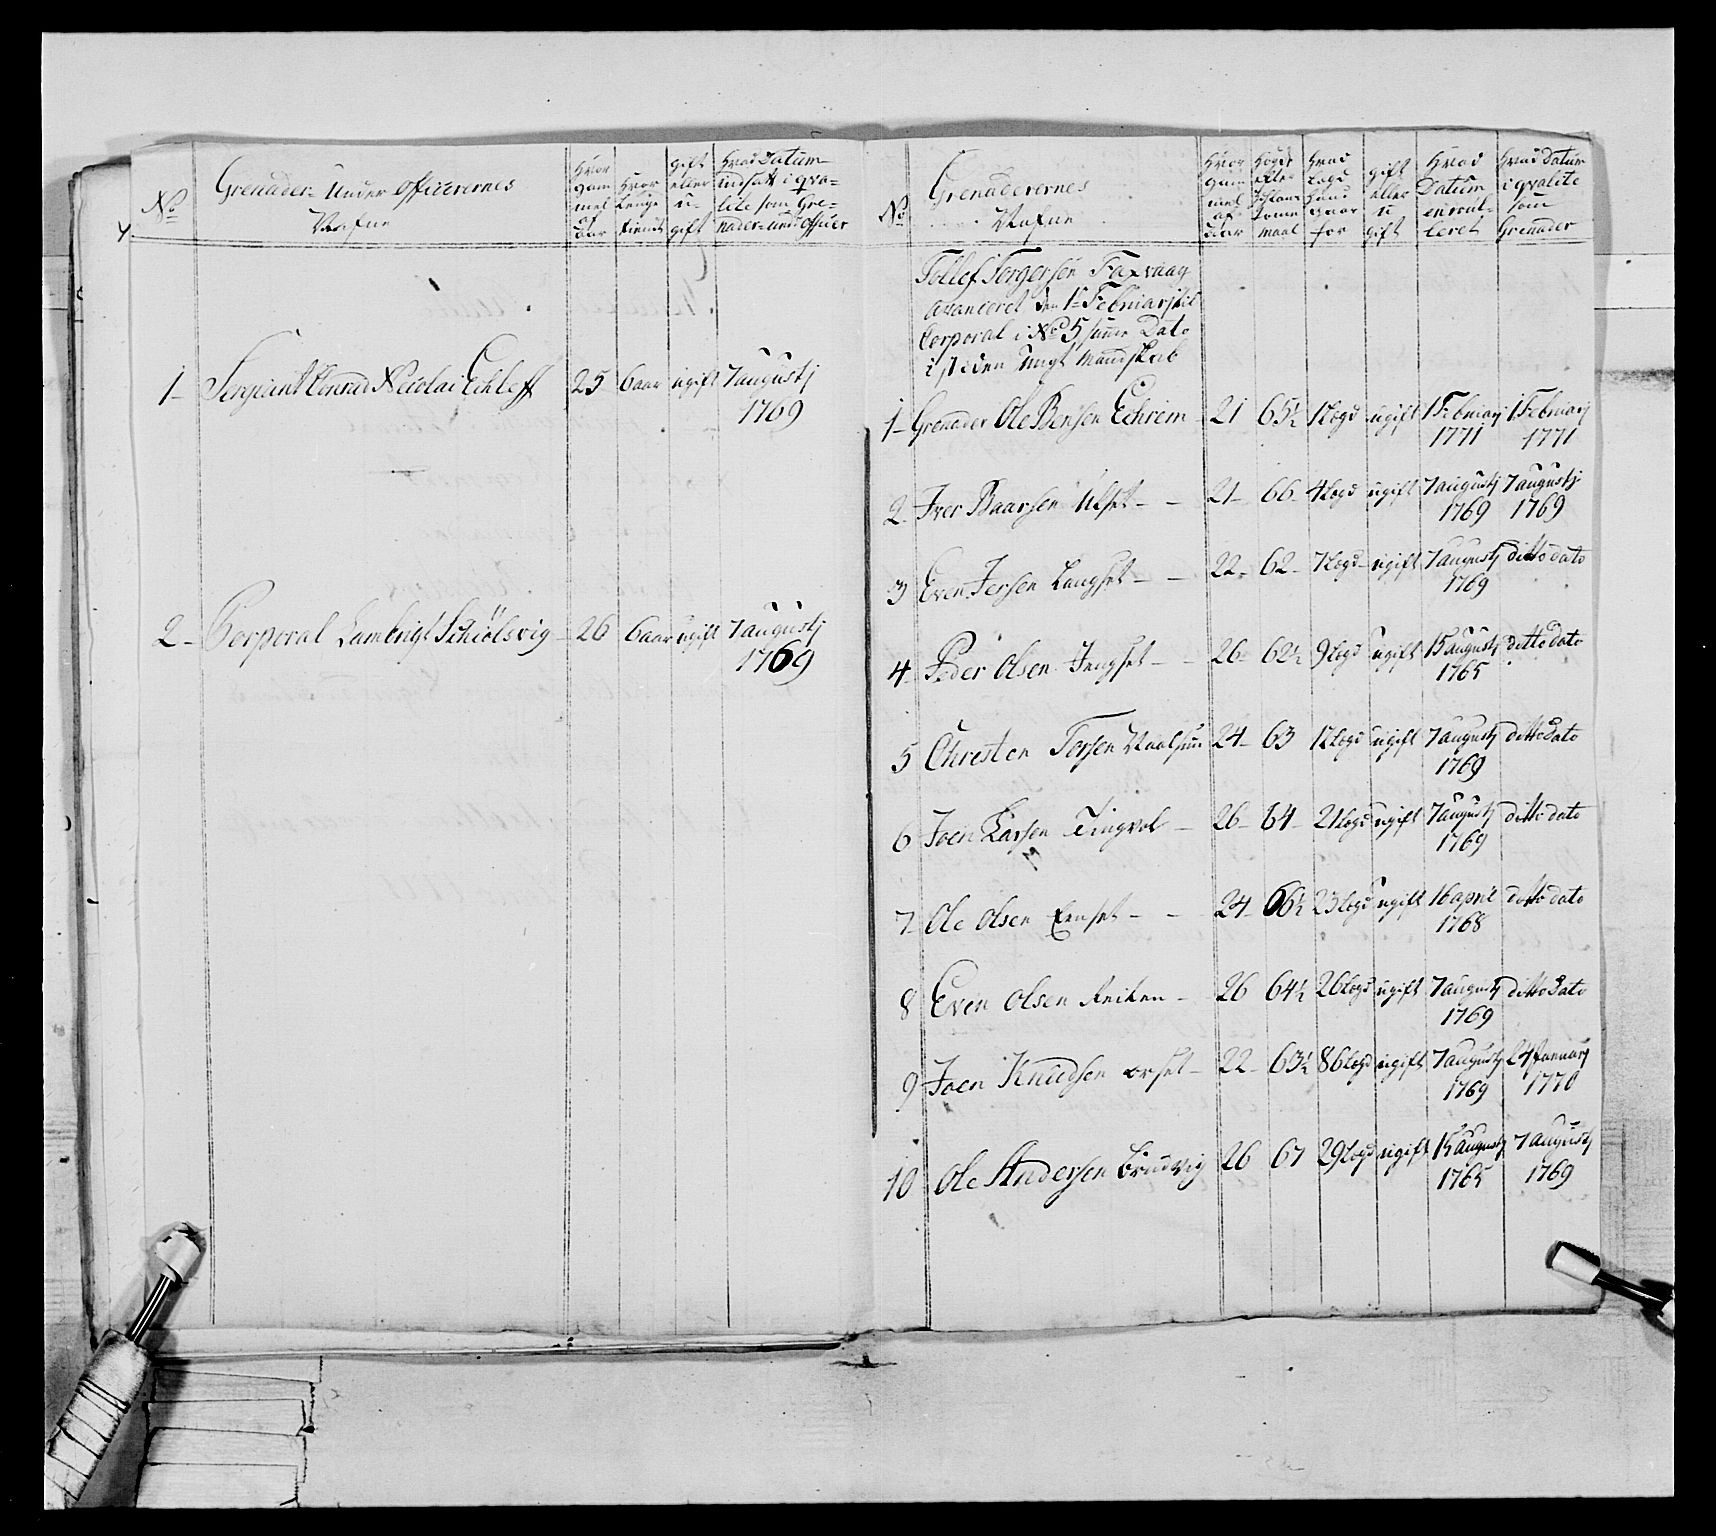 No
Grenader- Under Officerernes
Nafne
Hvor gammel af aar
Hvor lenge tient
gift eller u-gift
Hvad Datum indsatt i qvalitet som Grenader-und Officer
1 Sergiant Conrad Nicolai Echleff 25 6 aar ugift 7 augustj 1769
2 Corporal Lambrigt Schiölsvig 26 6 aar ugift 7 augustj 1769
No
Grenaderernes
Nafne
Hvor gammel af aar
Höyde efter maal
Hvad Legd hand staar for
gift eller u gift
Hvad Datum enroulleret
Hvad datum i qvalite som Grenader
Tollef Torgersen Faxvaag
avanceret den 1te Februarj til
Corporal i No 5 samme Dato
i steden Ungt Mandskab
1 Grenader Ole Bensen Echrem 21 65½ 1 Legd ugift 1 Februarj 1771 1 Februarj 1771
2 Iver Baarsen Ulset 21 66 4 Legd ugift 7 augustj 1769 7 augustj 1769
3 Even Iversen Langset 22 62 7 Legd ugift 7 augustj 1769 ditto dato
4 Peder Olsen Ingset 26 62½ 9 Legd ugift 15 augustj 1765 ditto dato
5 Christen Torsen 24 63 12 Legd ugift 7 augustj 1769 ditto Dato
6 Joen Larsen Tingvol 26 64 21 Legd ugift 7 augustj 1769 ditto dato
7 Ole Olsen 24 66½ 23 Legd ugift 16 april 1768 ditto dato
8 Even Olsen Reiten 26 64½ 26 Legd ugift 7 augustj 1769 ditto Dato
9 Joen Knudsen Orset 22 63½ 86 Legd ugift 7 augustj 1769 24 Januarj 1770
10 Ole Andersen Brudvig 26 67 29 Legd ugift 15 augustj 1765 7 augustj 1769